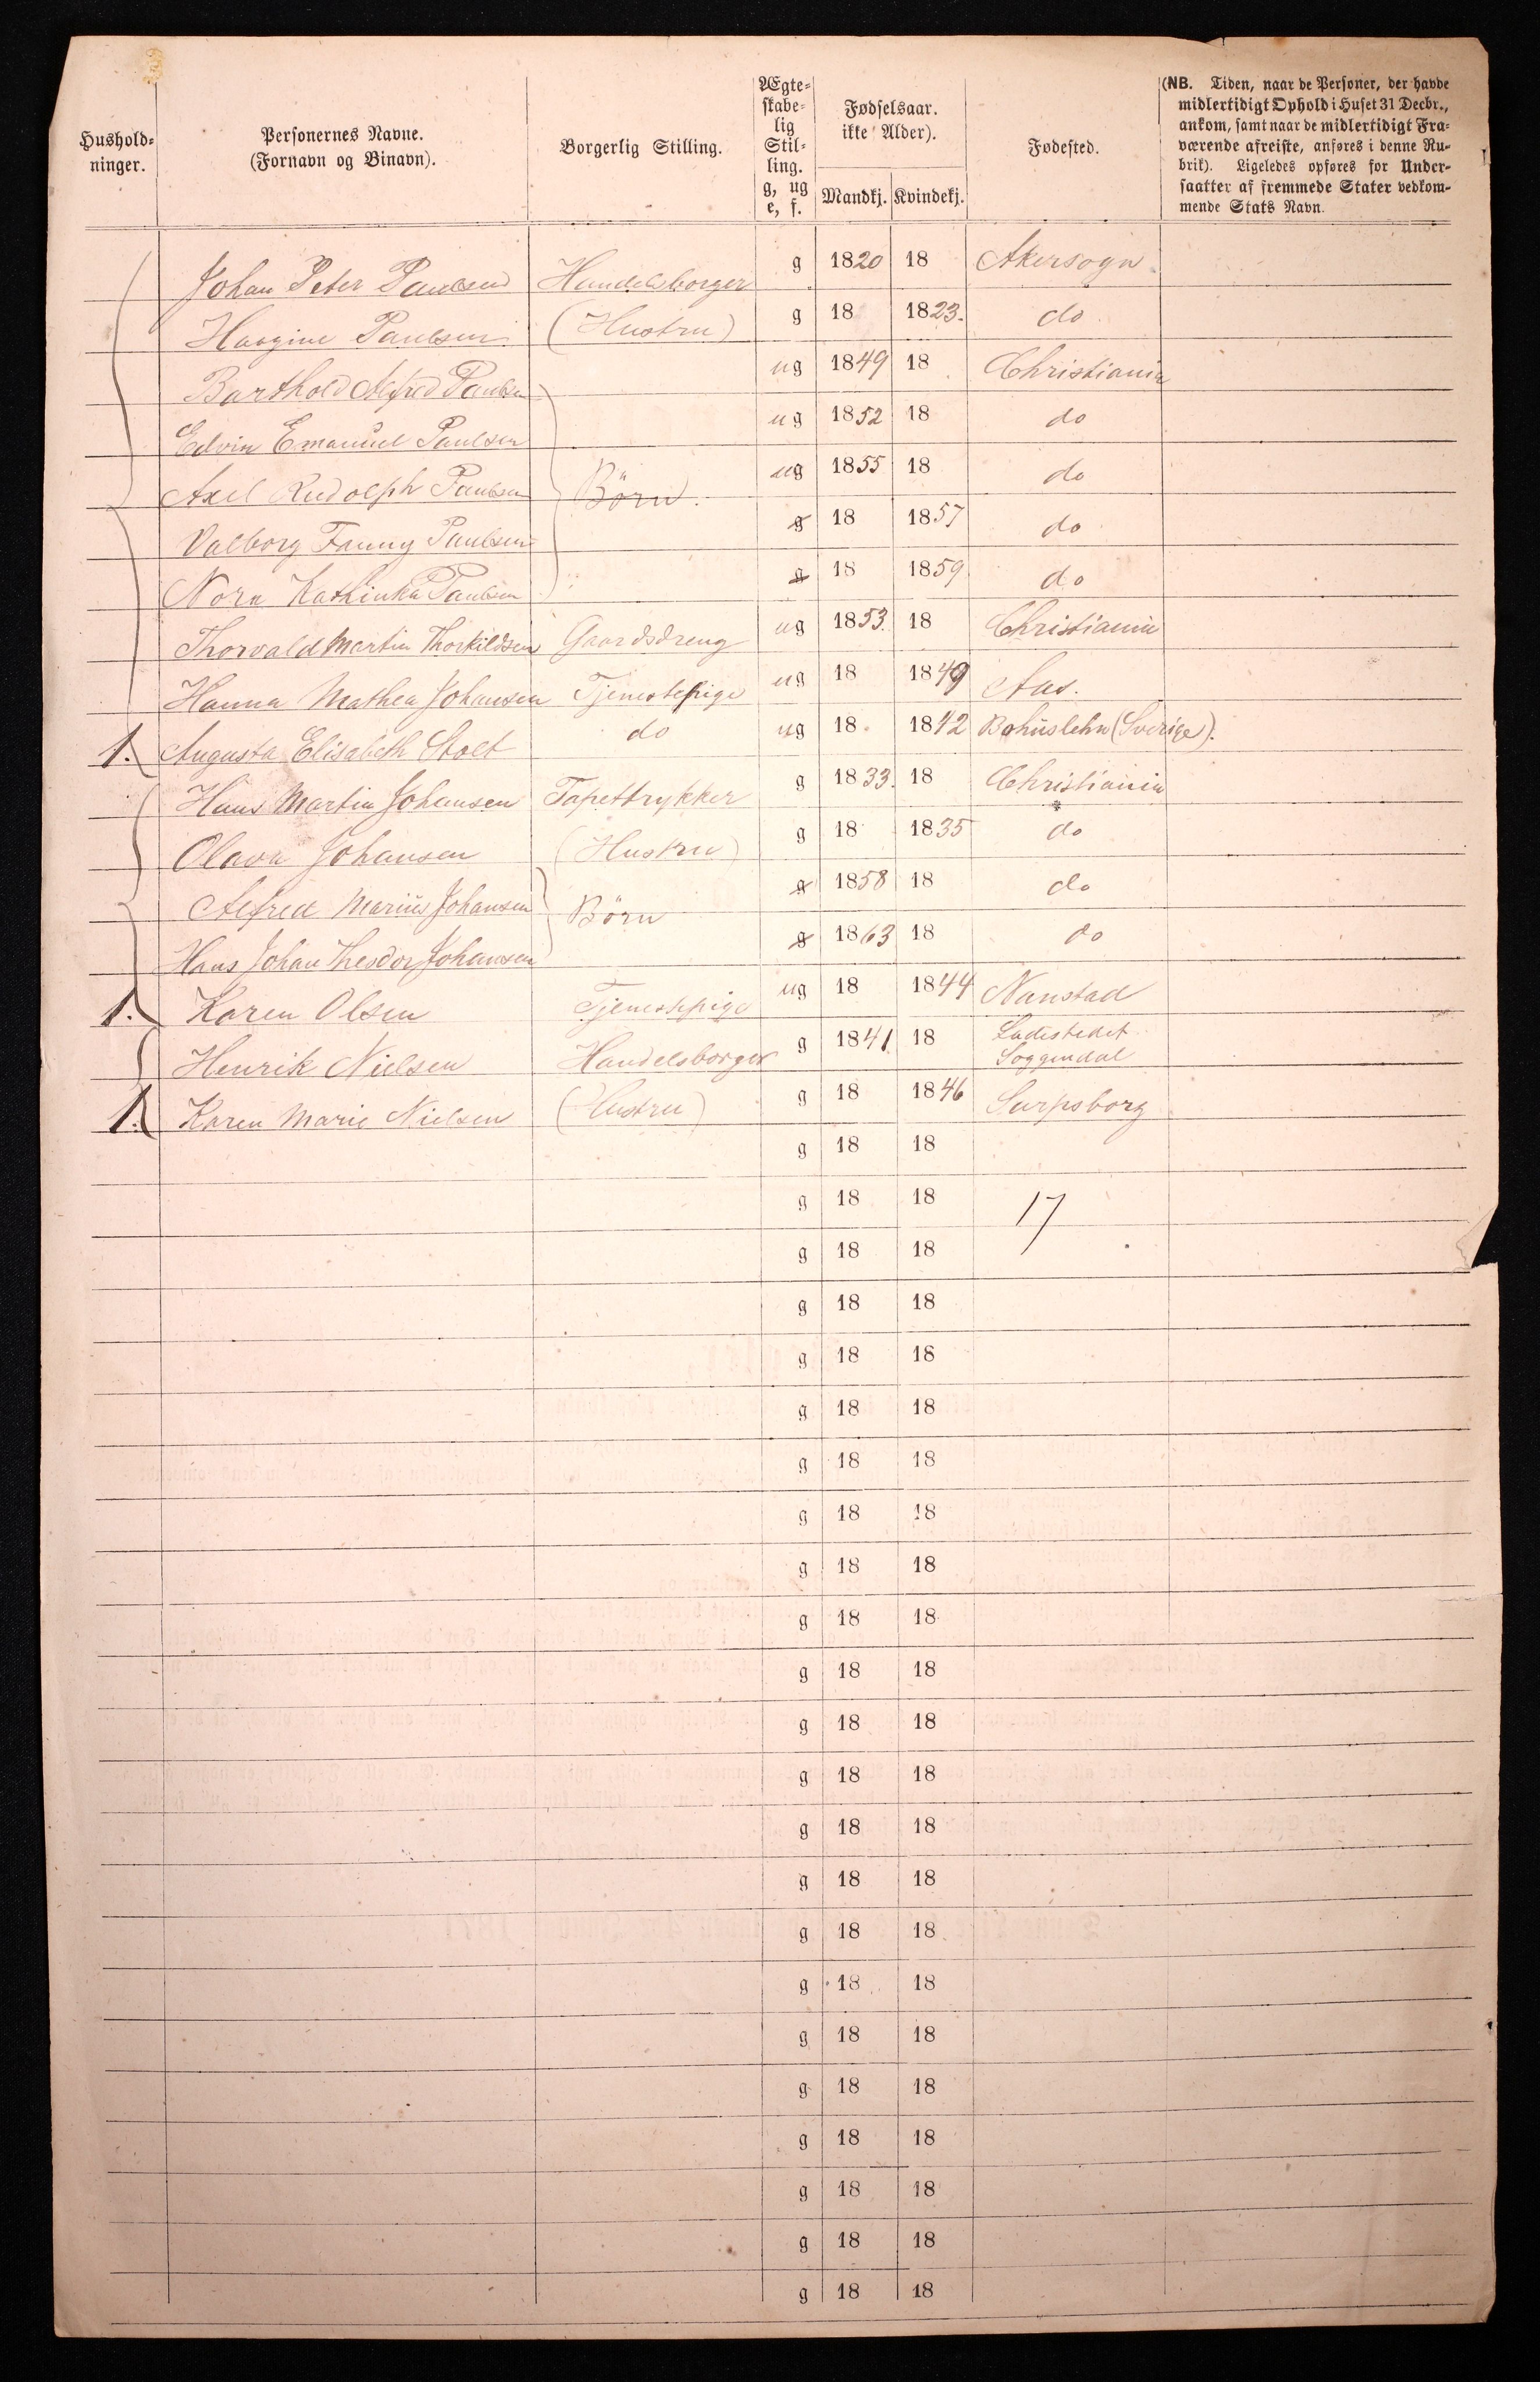 Hushold-
ninger.
Personernes Navne.
(Fornavn og Binavn).
Borgerlig Stilling.
Ægte-
skabe-
lig
Stil-
ling.
g, ug
e, f.
Fødselsaar.
ikke Alder).
Mandkj. Kvindekj.
Fødested.
(NB. Tiden, naar de Personer, der havde
midlertidigt Ophold i Huset 31 Decbr.,
ankom, samt naar de midlertidigt Fra-
værende afreiste, anføres i denne Ru-
brik). Ligeledes opføres for Under-
saatter af fremmede Stater vedkom-
mende Stats Navn.
Johan Peter Paulsen Handelsborger g 1820 18 Akersogn
Paulsen (Hustru) g 18 1823. do
Barthold Alfred Paulsen ug 1849 18 Christiania
Edvin Emanuel Paulsen ug 1852 18 do
Axel Rudolph Paulsen Börn. ug 1855 18 do
Valborg Fanny Paulsen g 18 1857 do
Nora Kathinka Paulsen g 18 1859 do
Thorvald Martin Thorkildsen Gaardsdreng ug 1853. 18 Christiania
Hanna Mathea Johansen Tjenestepige ug 18 1849 Aas.
1. Augusta Elisabeth Stolt do ug 18 1842 Bohuslehn (Sverige).
Hans Martin Johansen Tapettrykker g 1833. 18 Christiania
Olava Johansen (Hustru) g 18 1835 do
Alfred Marius Johansen Börn g 1858 18 do
Hans Johan Theodor Johansen g 1863 18 do
1. Karen Olsen Tjenestepige ug 18 1844 Nanstad
Henrik Nielsen Handelsborger g 1841. 18 Ladestedet
Soggendal
1. Karen Marie Nielsen (Hustru) g 18 1846 Sarpsborg
g 18 18
g 18 18 17
g 18 18
g 18 18
g 18 18
g 18 18
g 18 18
g 18 18
g 18 18
g 18 18
g 18 18
g 18 18
g 18 18
g 18 18
g 18 18
g 18 18
g 18 18
g 18 18
g 18 18
g 18 18
g 18 18
g 18 18
g 18 18